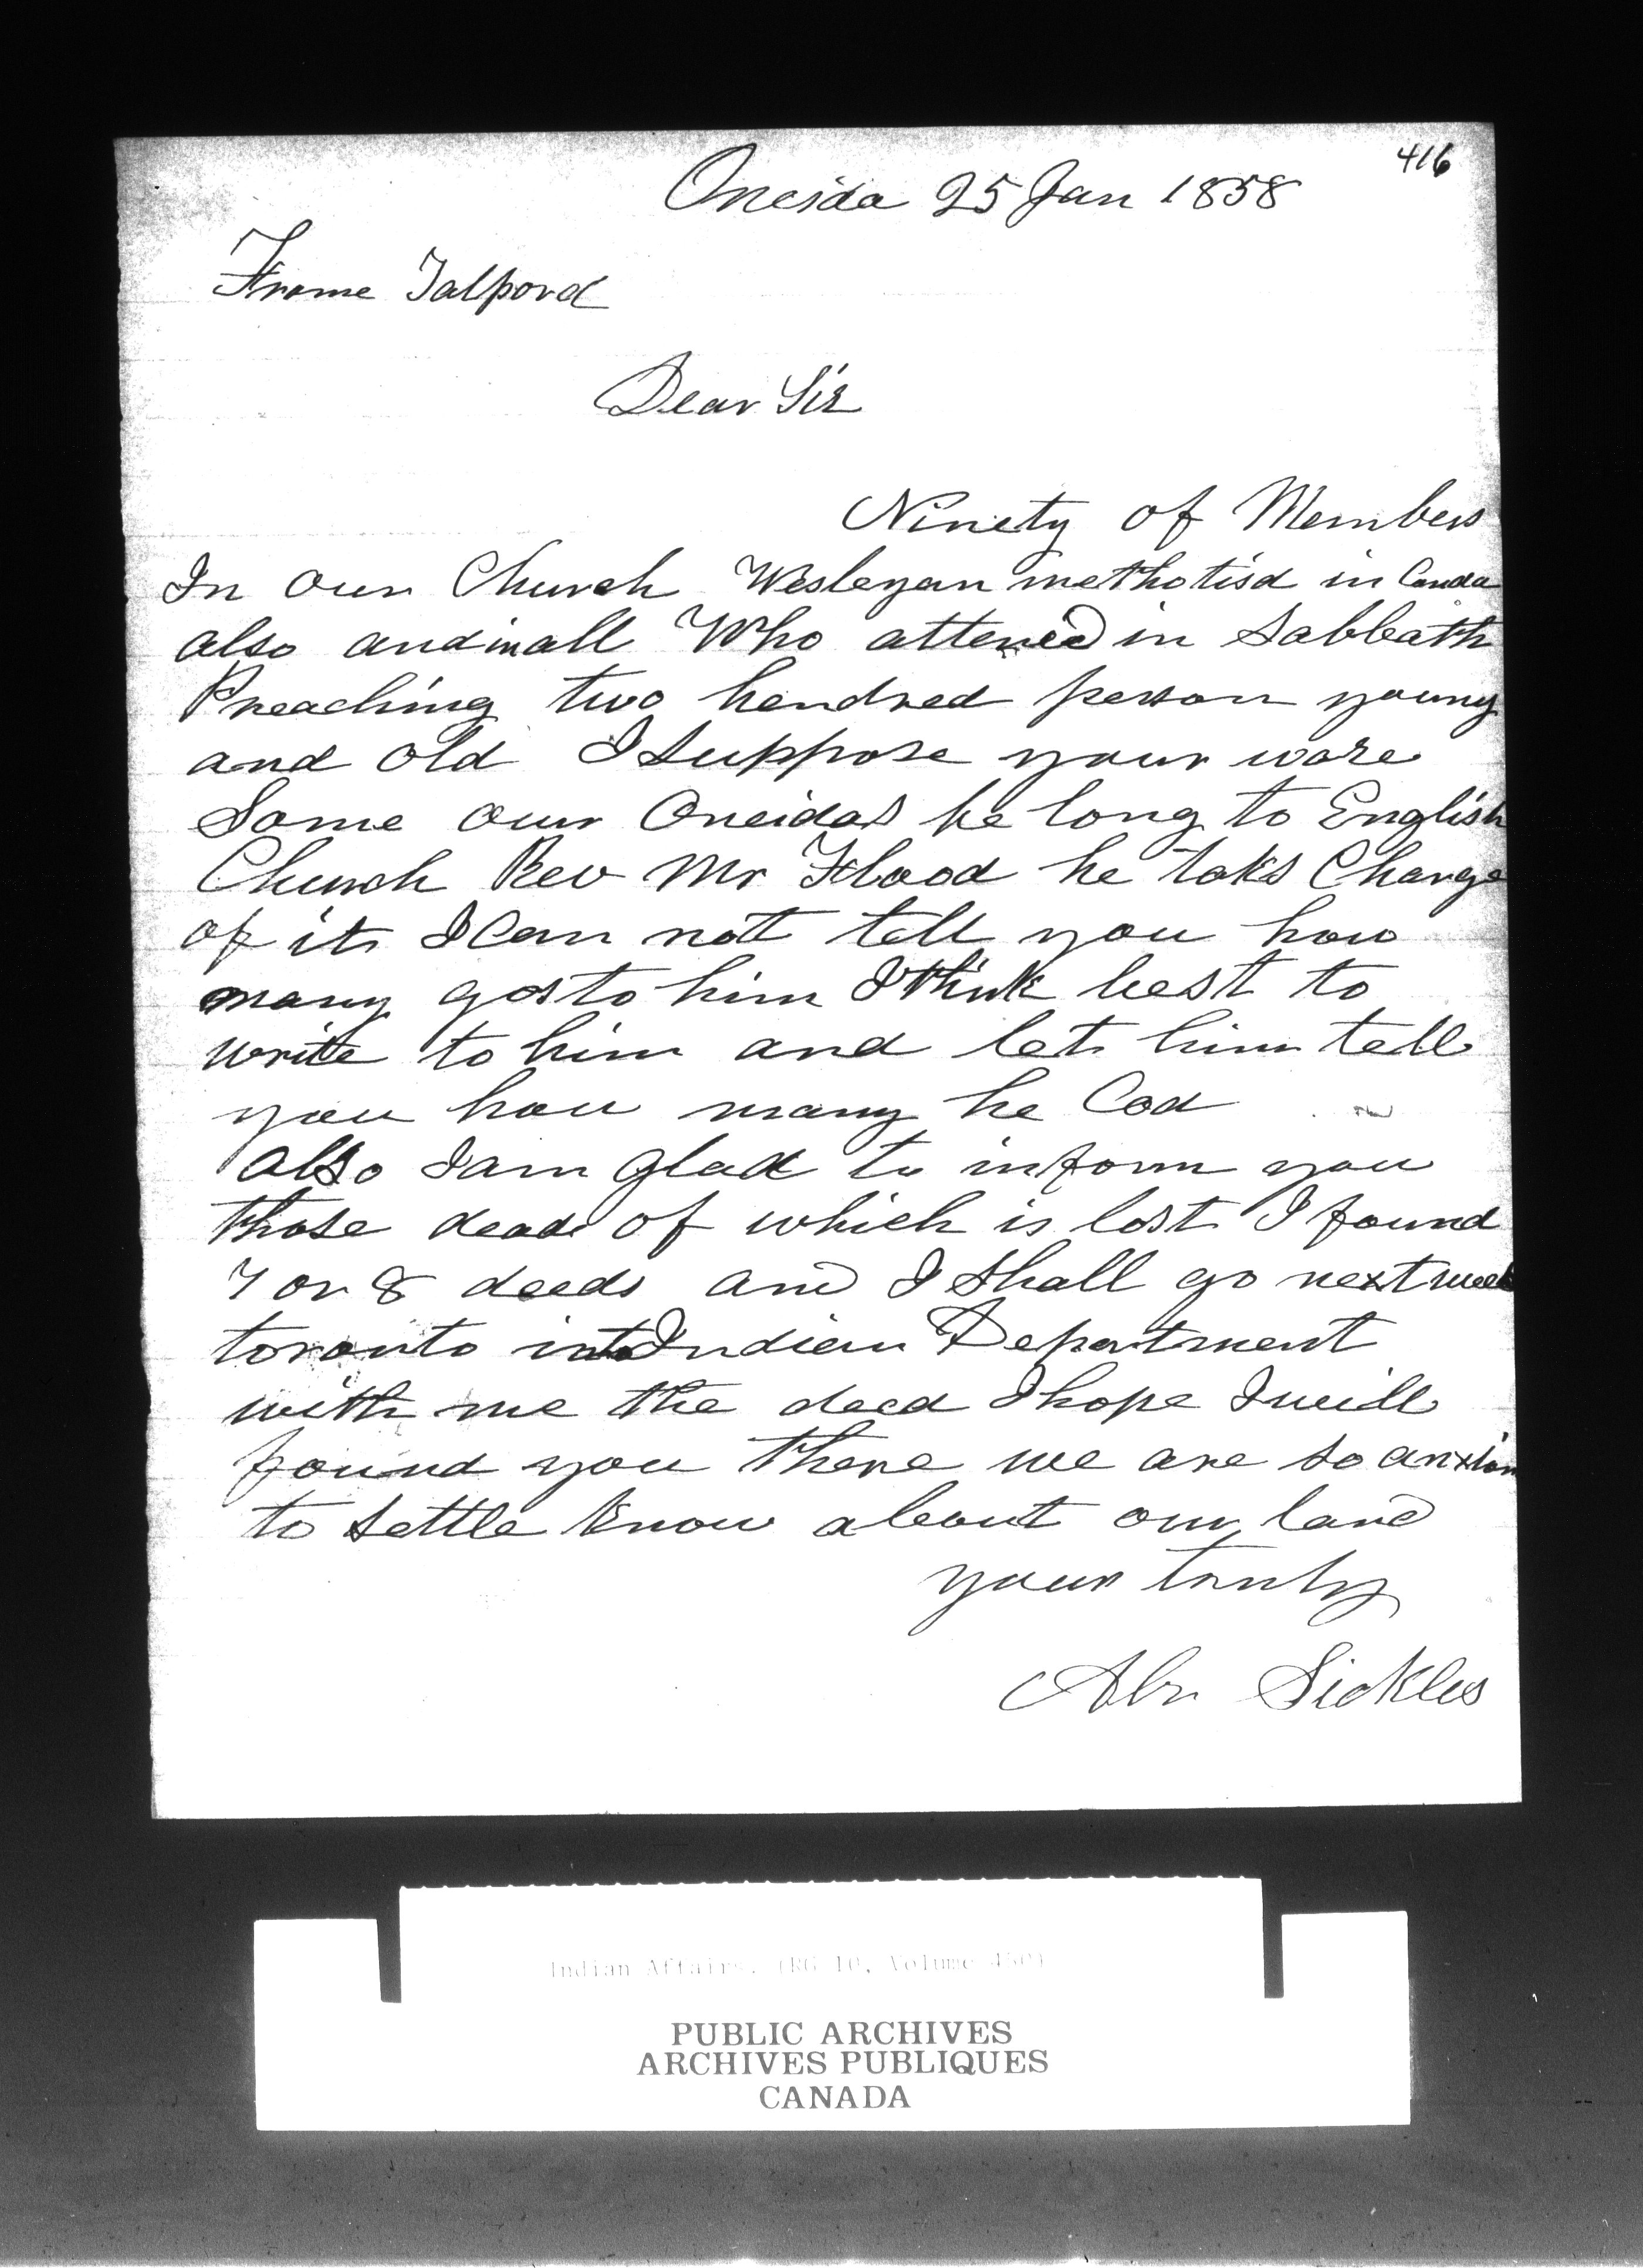 416
Oneida 25 Jan 1858
Frome Talpord
Dear Sir
Ninety of Members
In our Church Wesleyan methotisd in Canda
also and in all Who attened in Sabbath
Preaching two hendred person young
and old I Suppose your ware
Some our Oneidas be long to English
Church Rev Mr Flood he taks Charge
of it I Can not tell you how
many gos to him I think best to
write to him and let him tell
you how many he Cod
also I am glad to inform you
those deads of which is lost I found
7 or 8 deeds and I Shall go next week
toronto into Indian Department
with me the deed I hope I will
found you there we are so anxious
to settle know about our land
your truly
Abr Sickles
Indian Affairs. (RG 10, Volume 450)
PUBLIC ARCHIVES
ARCHIVES PUBLIQUES
CANADA